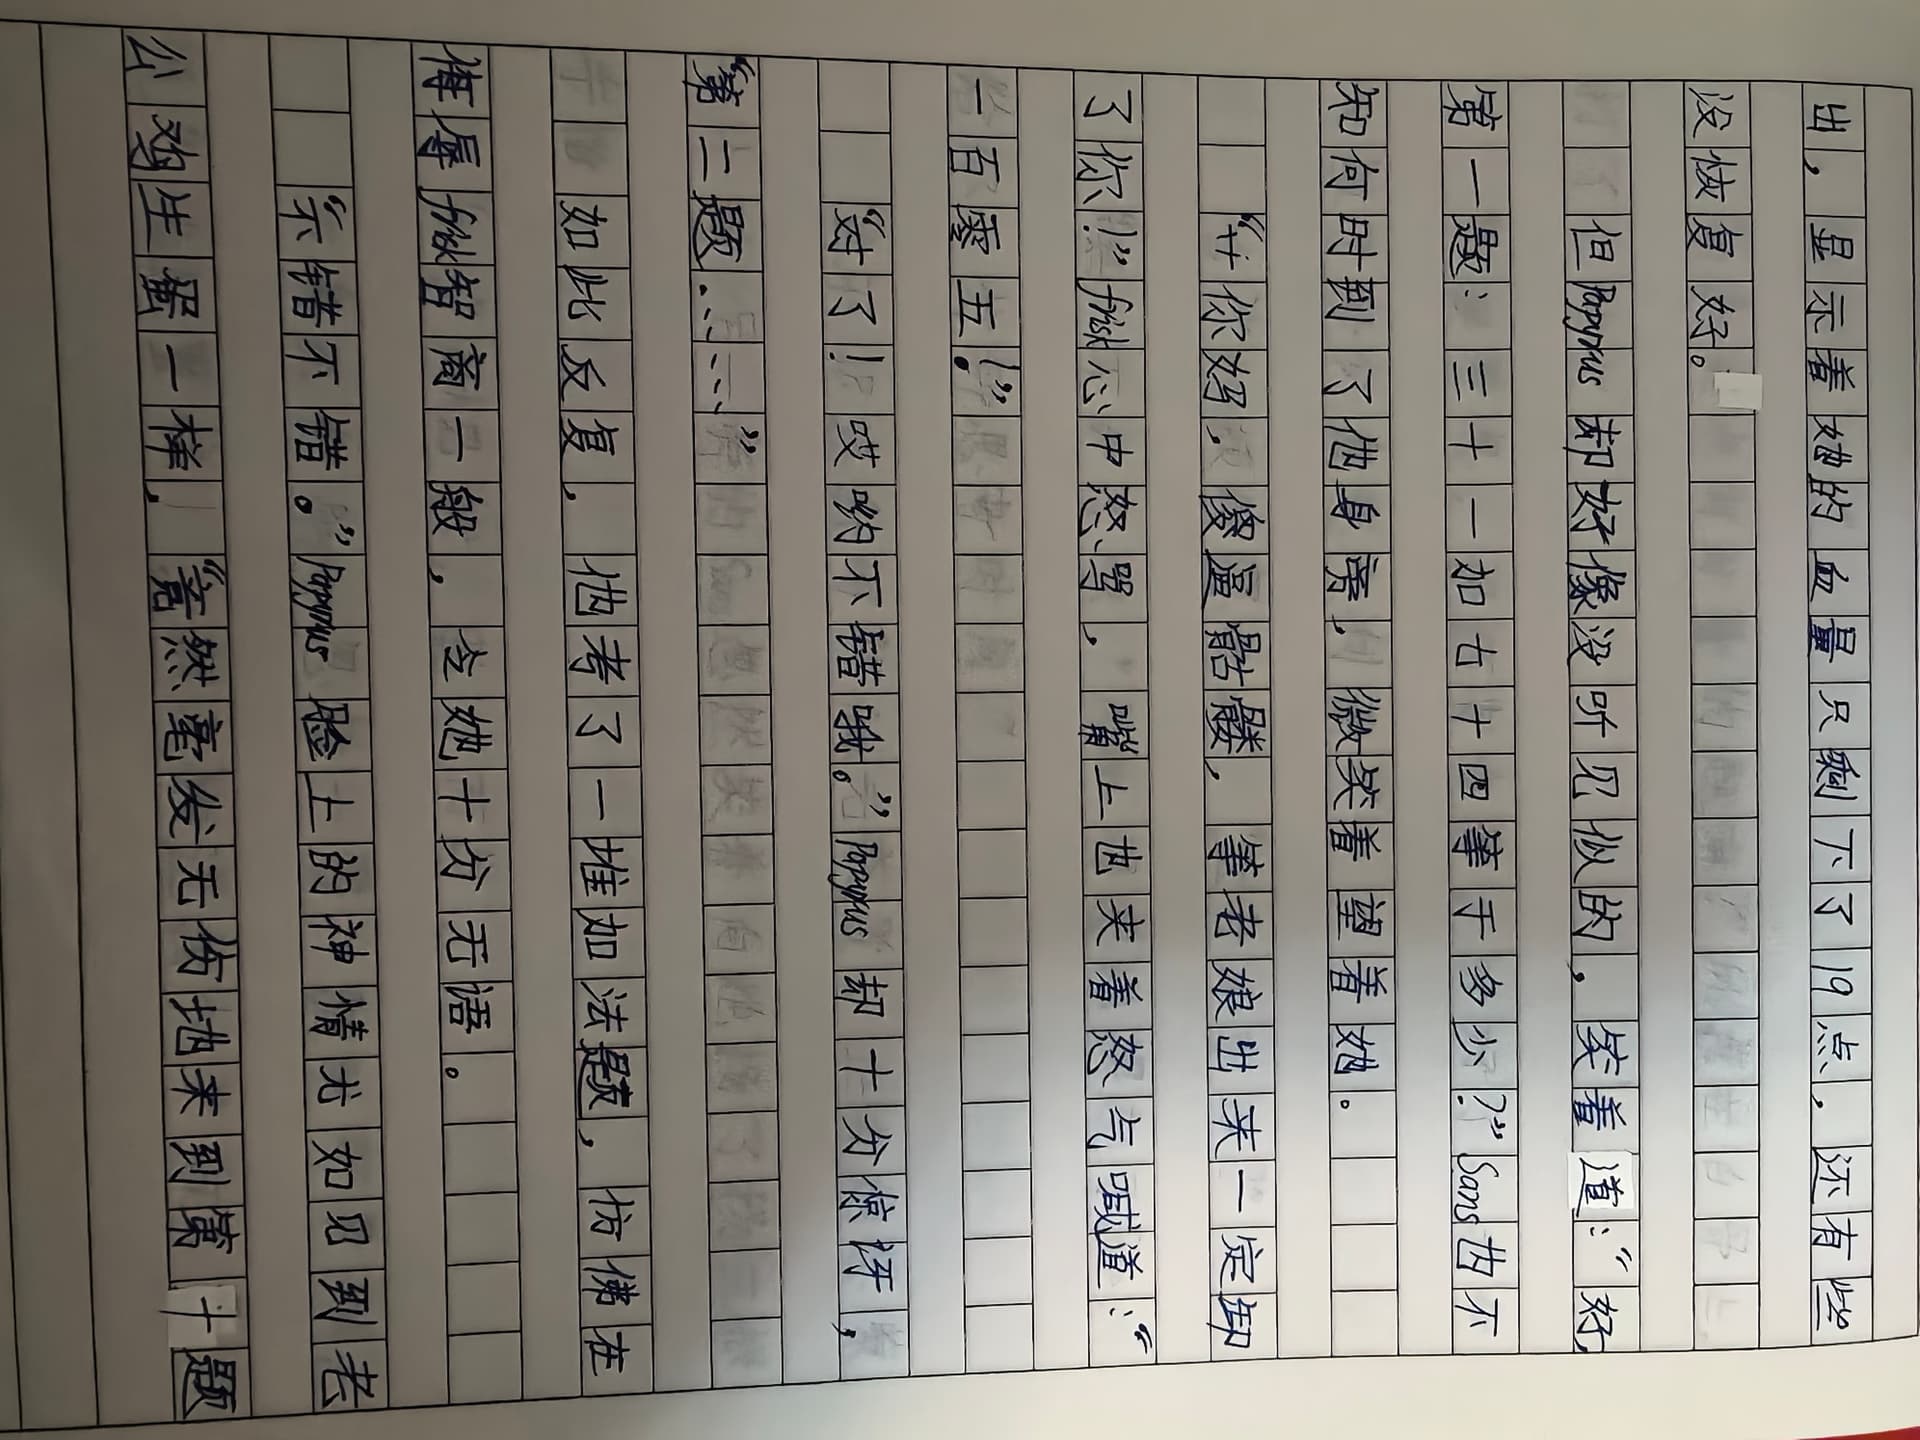 出，显示着她的血量只剩下了19点，还有些
没恢复好。
但Papyrus却好像没听见似的，笑着道：“好，
第一题：三十一加七十四等于多少？”Sans也不
知何时到了他身旁，微笑着望着她。
“你好，傻逼骷髅，等老娘出来一定卸
了你！”frisk心中怒骂，嘴上也夹着怒气喊道：“
一百零五！”
“对了！哎哟不错哦。”Papyrus却十分惊讶，
“第二题……”
如此反复，他考了一堆加法题，仿佛在
侮辱frisk智商一般，令她十份无语。
“不错不错。”Papyrus脸上的神情尤如见到老
公鸡生蛋一样，“竟然毫发无伤地来到第十题